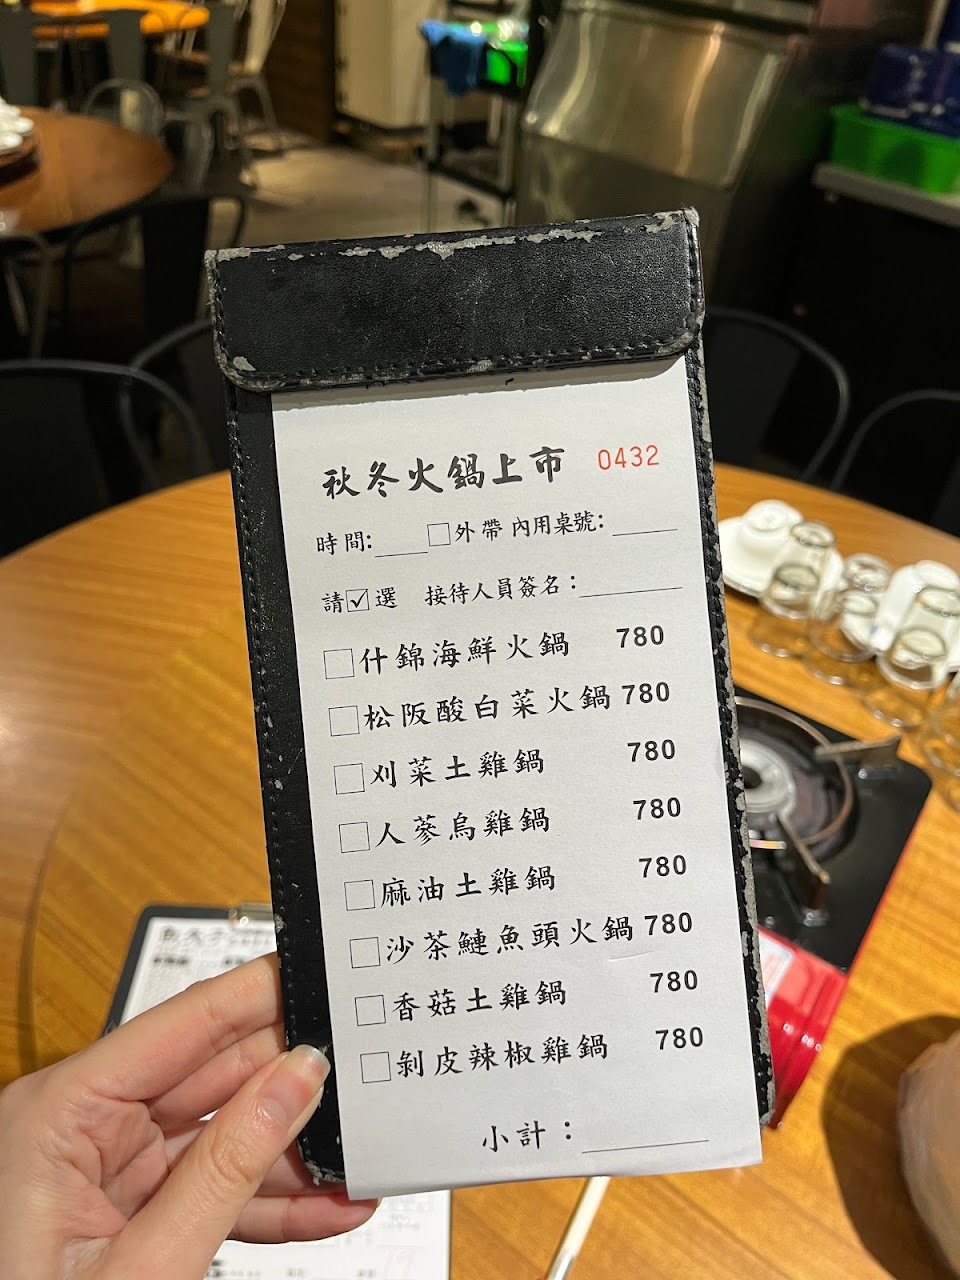 秋冬火鍋上市 0432
時間:____□外帶 內用桌號:_____
請☑選 接待人員簽名：________
□什錦海鮮火鍋 780
□松阪酸白菜火鍋 780
□刈菜土雞鍋 780
□人蔘烏雞鍋 780
□麻油土雞鍋 780
□沙茶鰱魚頭火鍋 780
□香菇土雞鍋 780
□剝皮辣椒雞鍋 780
小計：________